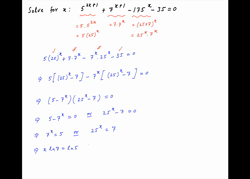 Solve for x : 5^(2x+1) + 7^(x+1) - 175^x - 35 = 0
= 5·5^(2x) = 7·7^x = (25×7)^x
= 5(25)^x = 25^x·7^x
5(25)^x + 7·7^x - 7^x·25^x - 35 = 0
⇒ 5[(25)^x - 7] - 7^x[(25)^x - 7] = 0
⇒ (5 - 7^x)(25^x - 7) = 0
⇒ 5 - 7^x = 0 or 25^x - 7 = 0
⇒ 7^x = 5 or 25^x = 7
⇒ x ln 7 = ln 5